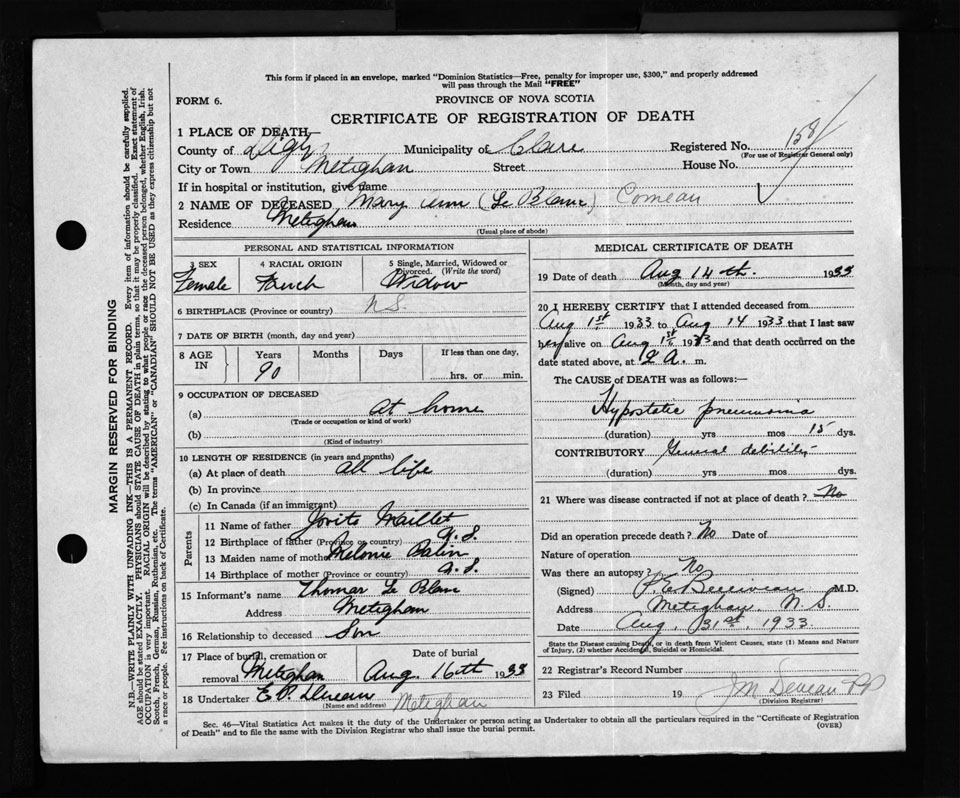 This form if placed in an envelope, marked "Dominion Statistics—Free, penalty for improper use, $300," and properly addressed
will pass through the Mail "FREE"
FORM 6.
PROVINCE OF NOVA SCOTIA
CERTIFICATE OF REGISTRATION OF DEATH
1 PLACE OF DEATH
County of Digby Municipality of Clare Registered No. 158
(For use of Registrar General only)
City or Town Meteghan Street House No.
If in hospital or institution, give name
2 NAME OF DECEASED Mary Ann (Le Blanc) Comeau
Residence Meteghan
(Usual place of abode)
PERSONAL AND STATISTICAL INFORMATION
3 SEX 4 RACIAL ORIGIN 5 Single, Married, Widowed or
Divorced. (Write the word)
Female French Widow
6 BIRTHPLACE (Province or country) N.S.
7 DATE OF BIRTH (month, day and year)
8 AGE IN Years Months Days If less than one day,
90 hrs. or min.
9 OCCUPATION OF DECEASED
(a) At home
(Trade or occupation or kind of work)
(b)
(Kind of industry)
10 LENGTH OF RESIDENCE (in years and months)
(a) At place of death all life
(b) In province
(c) In Canada (if an immigrant)
Parents
11 Name of father Maillet
12 Birthplace of father (Province or country) N.S.
13 Maiden name of mother Melonie
14 Birthplace of mother (Province or country) N.S.
15 Informant's name Thomas Le Blanc
Address Meteghan
16 Relationship to deceased Son
17 Place of burial, cremation or Date of burial
removal Meteghan Aug. 16th 1933
18 Undertaker E.P. Deveau
(Name and address) Meteghan
MEDICAL CERTIFICATE OF DEATH
19 Date of death Aug 14th. 1933
(Month, day and year)
20 I HEREBY CERTIFY that I attended deceased from
Aug 1st 1933 to Aug 14 1933 that I last saw
her alive on Aug 1st 1933 and that death occurred on the
date stated above, at 2 A. m.
The CAUSE OF DEATH was as follows:—
Hypostatic pneumonia
(duration) yrs mos 15 dys.
CONTRIBUTORY General debility
(duration) yrs mos dys.
21 Where was disease contracted if not at place of death? No
Did an operation precede death? No Date of
Nature of operation
Was there an autopsy? No
(Signed) M.D.
Address Meteghan, N.S.
Date Aug. 31st 1933
State the Disease causing Death, or in death from Violent Causes, state (1) Means and Nature
of Injury, (2) whether Accidental, Suicidal or Homicidal.
22 Registrar's Record Number
23 Filed 19 J M Deveau PP
(Division Registrar)
Sec. 46—Vital Statistics Act makes it the duty of the Undertaker or person acting as Undertaker to obtain all the particulars required in the "Certificate of Registration
of Death" and to file the same with the Division Registrar who shall issue the burial permit.
(OVER)
MARGIN RESERVED FOR BINDING
N.B.—WRITE PLAINLY WITH UNFADING INK—THIS IS A PERMANENT RECORD. Every item of information should be carefully supplied.
AGE should be stated EXACTLY. PHYSICIANS should STATE CAUSE OF DEATH in plain terms, so that it may be properly classified. Exact statement of
OCCUPATION is very important. RACIAL ORIGIN will be described by stating to what people or race the deceased person belonged, whether English, Irish,
Scotch, French, German, Russian, Ruthenian, etc. The terms "AMERICAN" or "CANADIAN" SHOULD NOT BE USED as they express citizenship but not
a race or people. See instructions on back of Certificate.